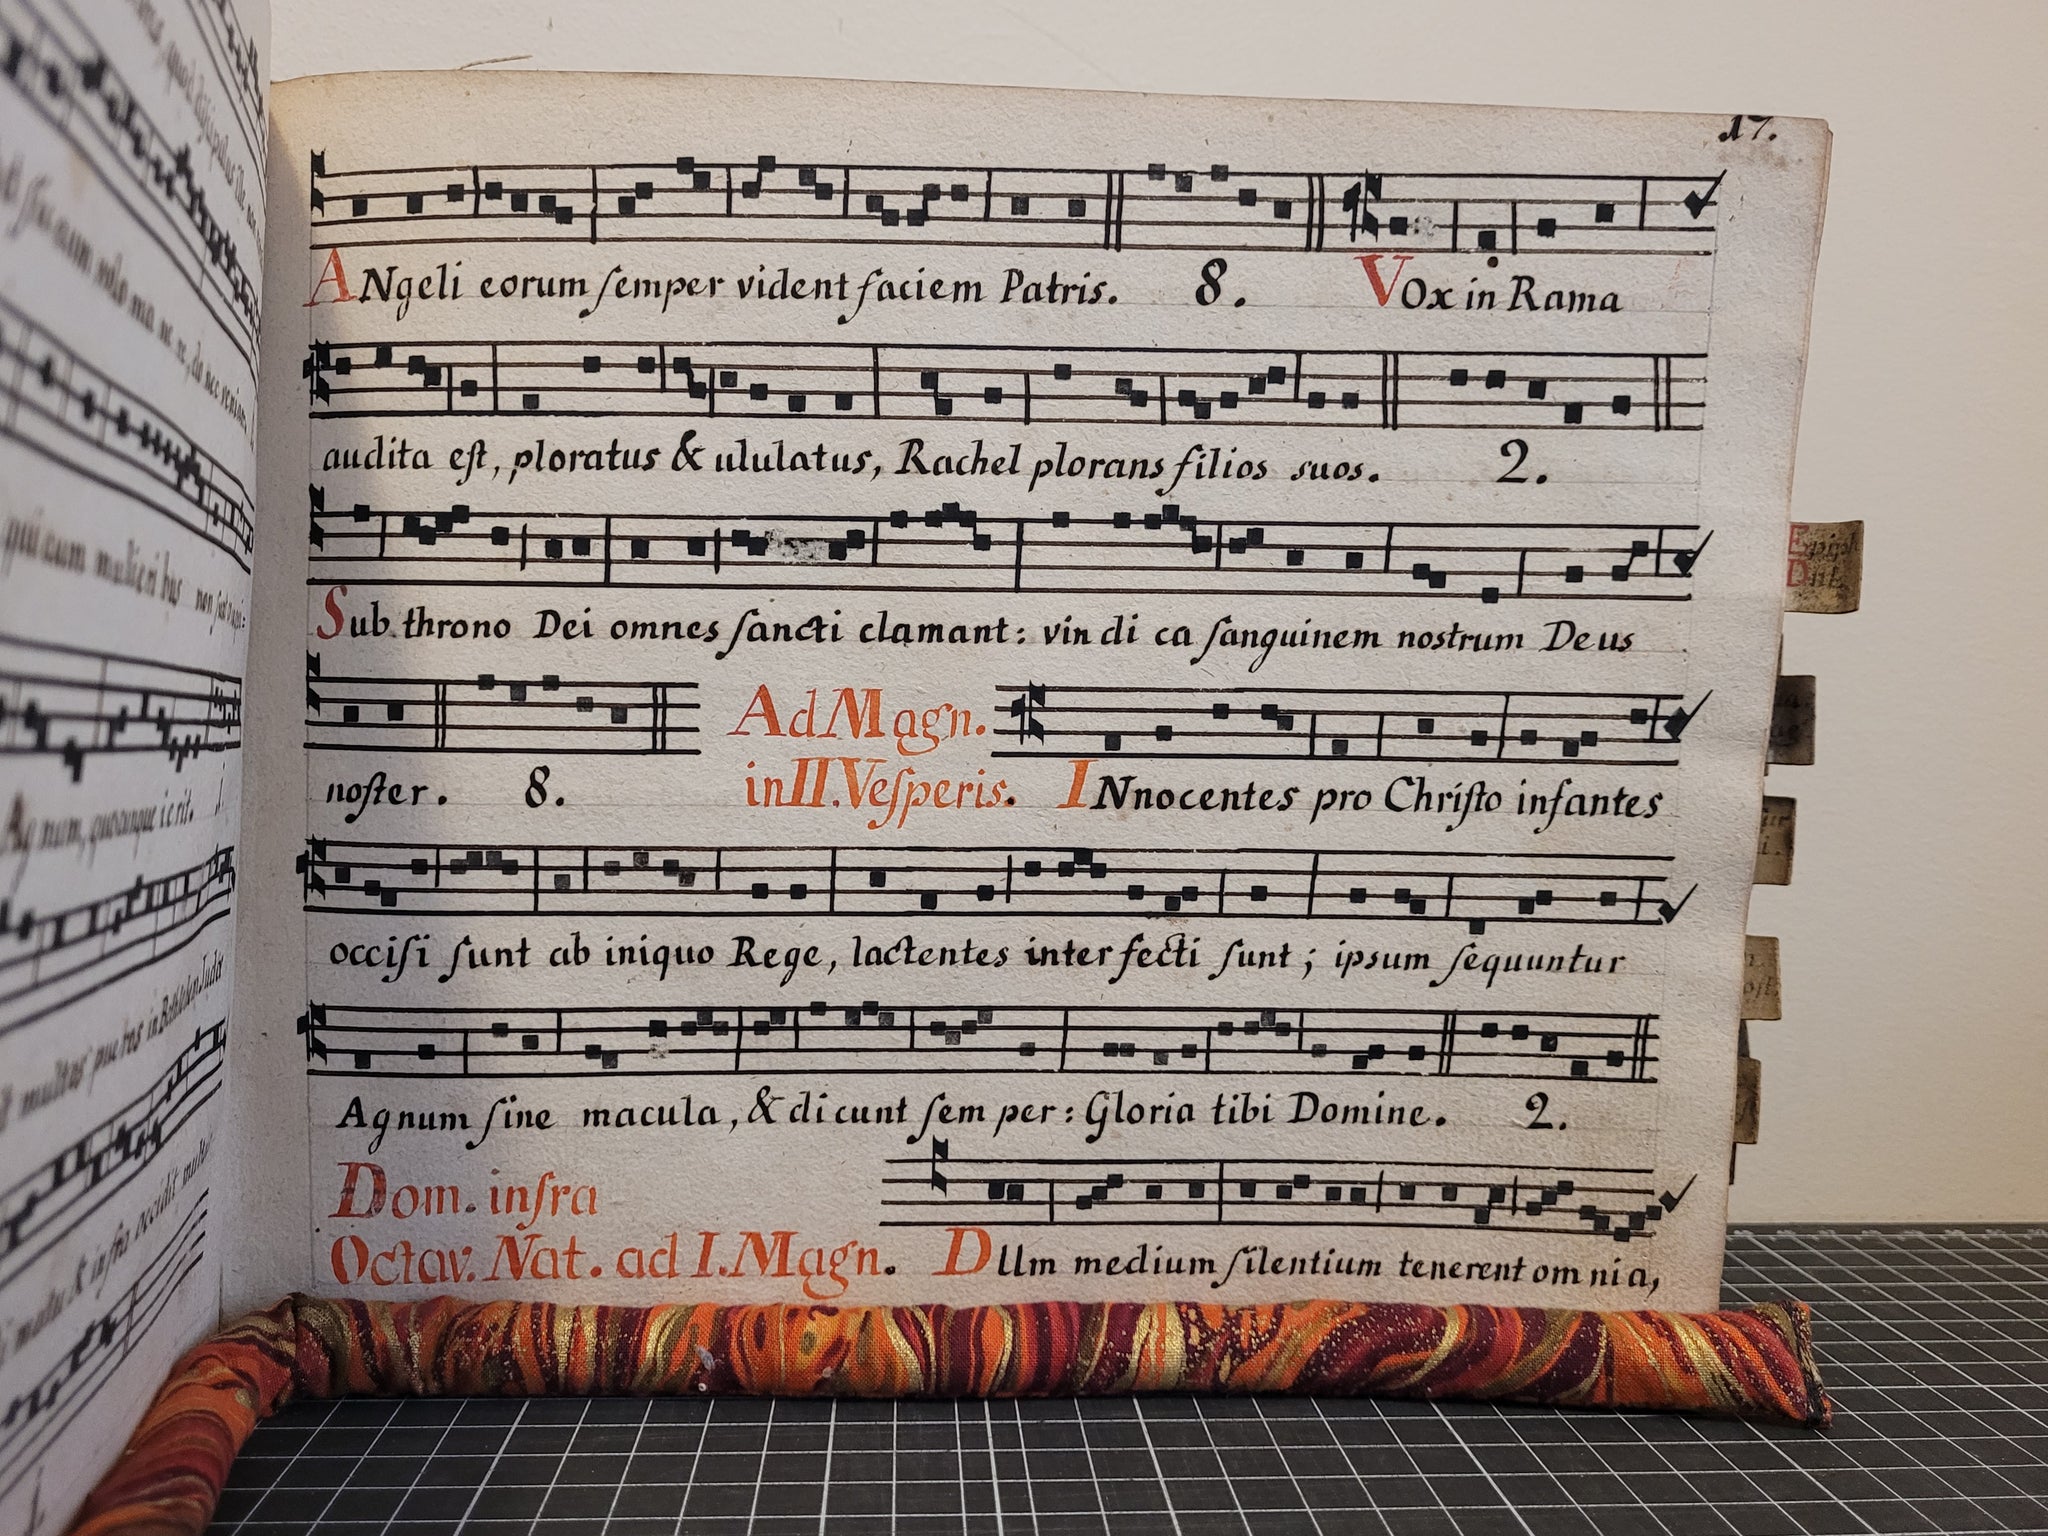 17.
ANgeli eorum ſemper vident faciem Patris. 8. VOx in Rama
audita eſt, ploratus & ululatus, Rachel plorans filios suos. 2.
Sub throno Dei omnes ſancti clamant: vindica ſanguinem nostrum Deus
noſter. 8. Ad Magn.
in II. Veſperis. INnocentes pro Chriſto infantes
occiſi ſunt ab iniquo Rege, lactentes interfecti ſunt; ipsum ſequuntur
Agnum ſine macula, & dicunt ſemper: Gloria tibi Domine. 2.
Dom. infra
Octav. Nat. ad I. Magn. DUm medium ſilentium tenerent omnia,
qui cum mulieribus non
Agnum, quocunque ierit.
in Bethlehem Judae
Epiph
Dni.